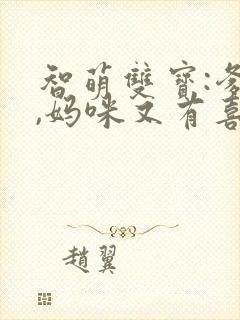 智萌雙寶:爹
,媽咪又有喜
趙翼